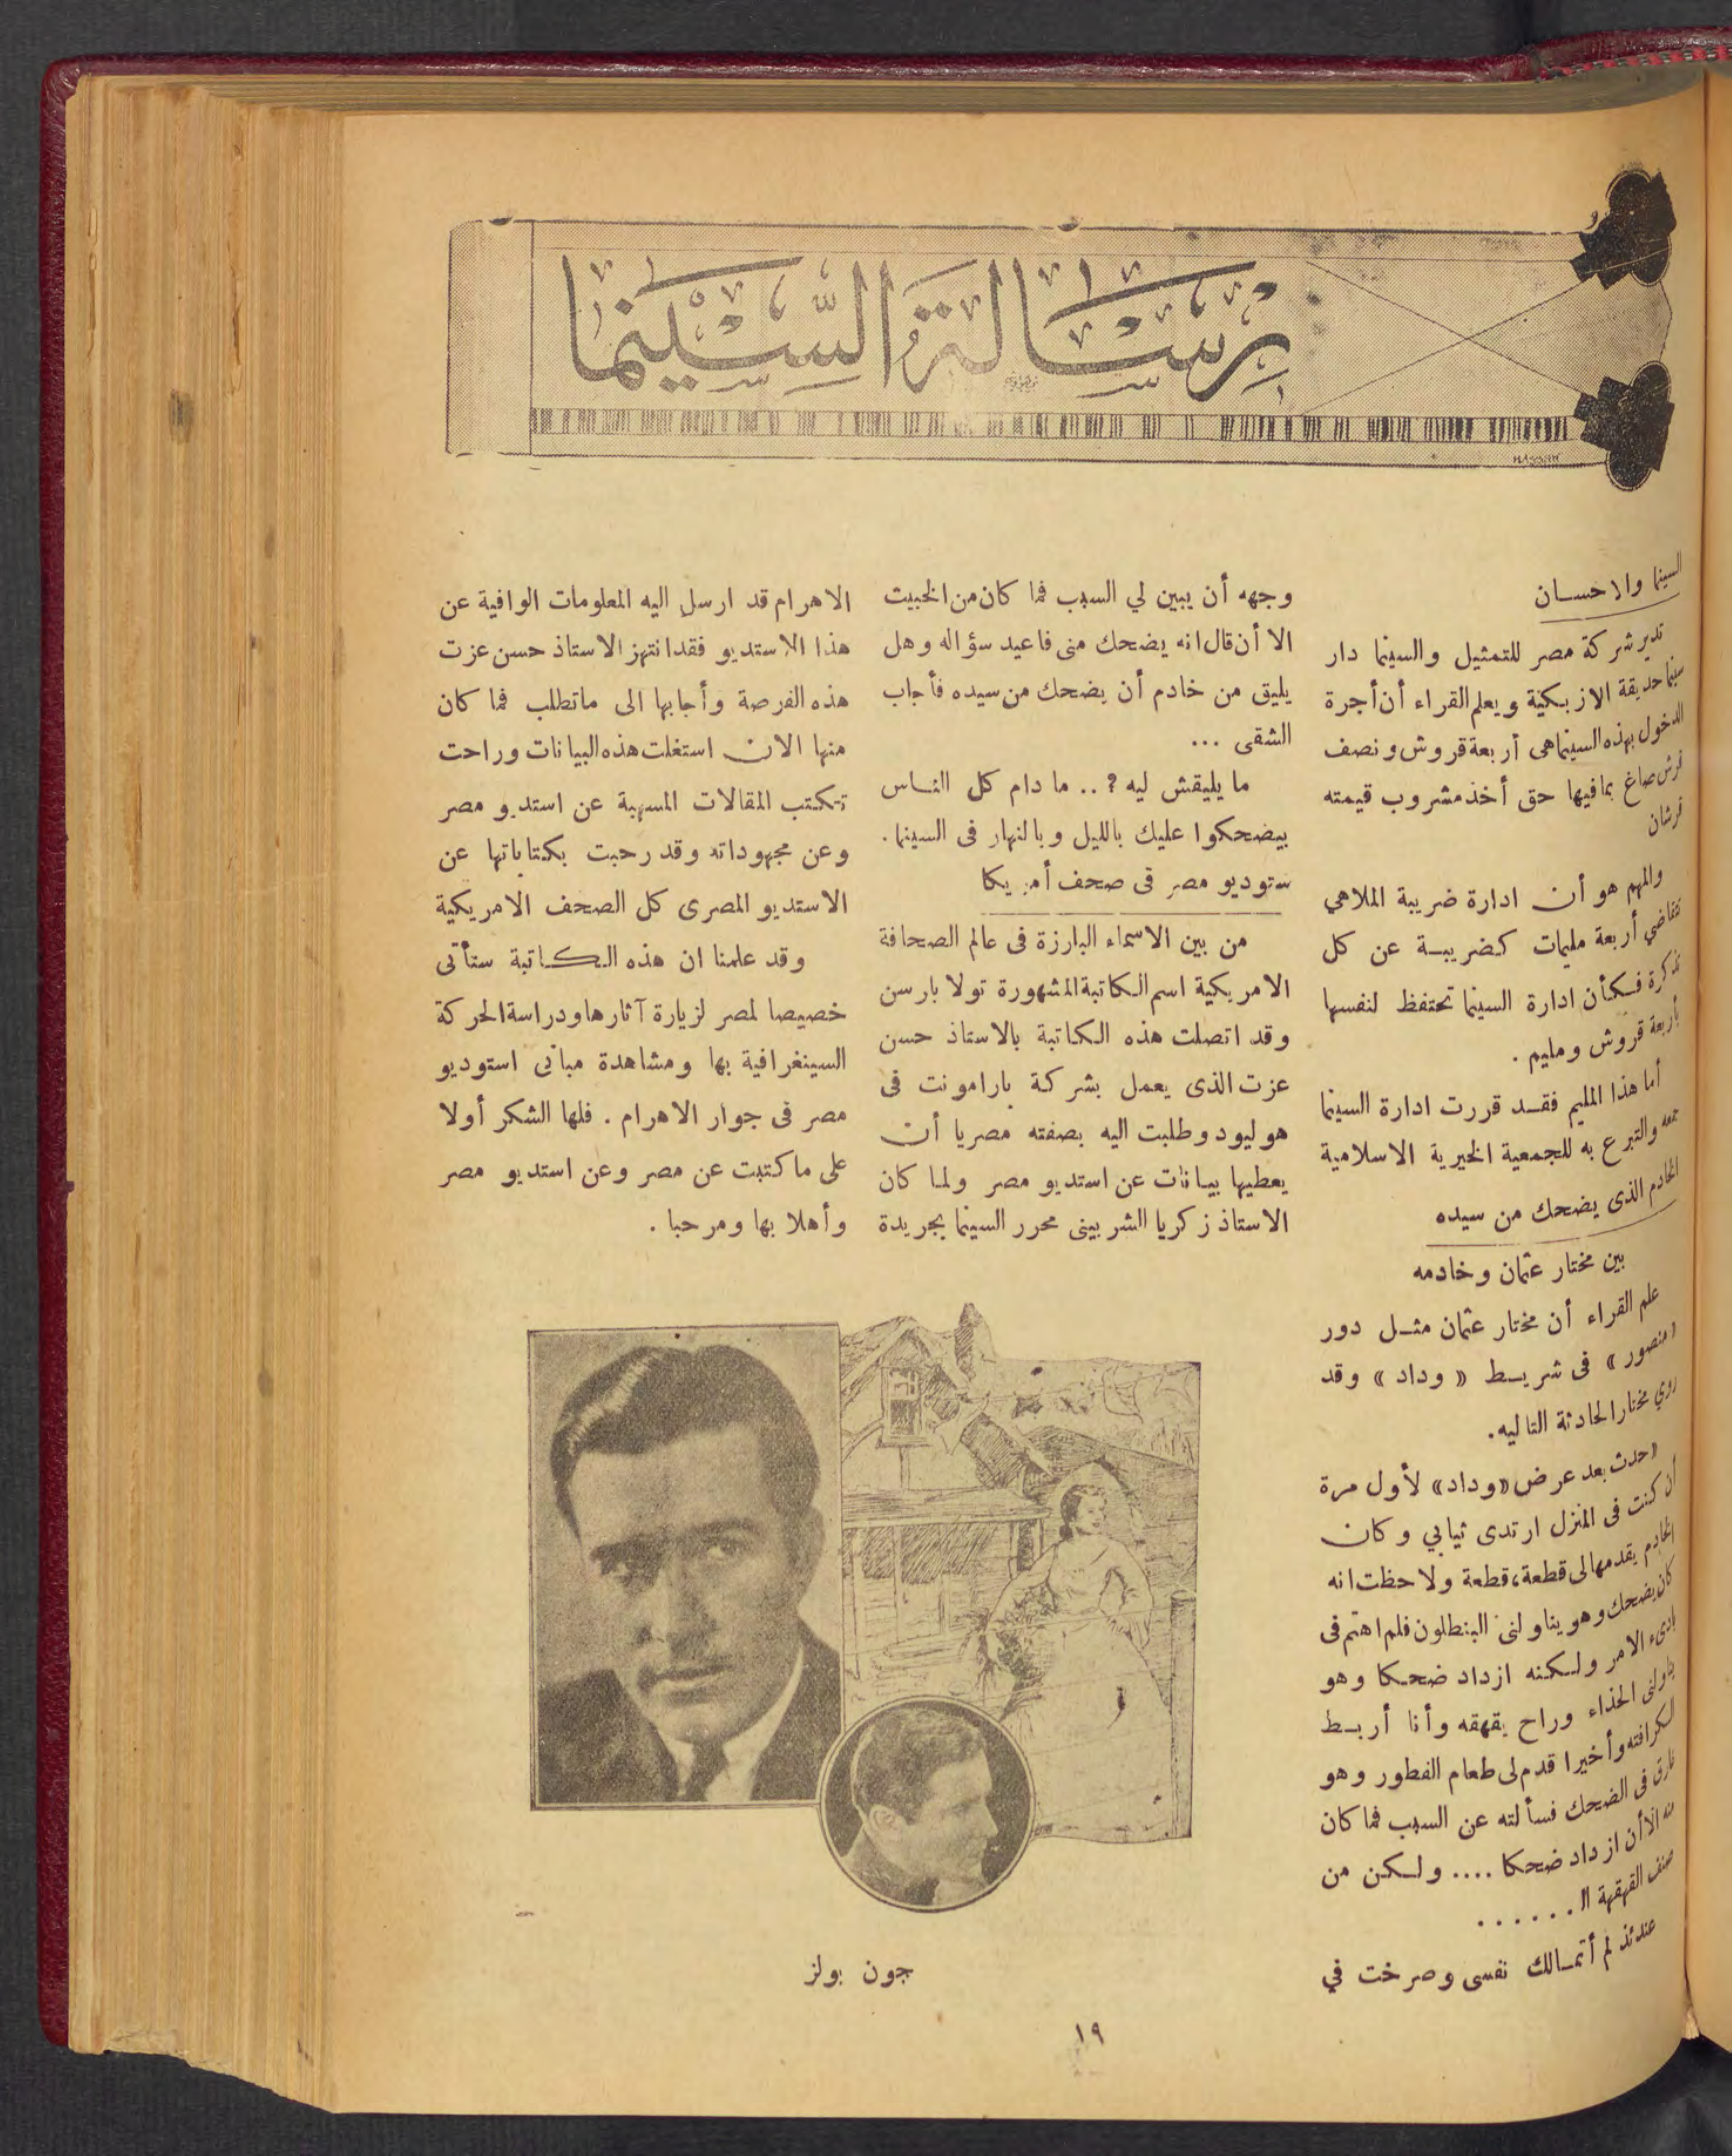 رسالة السينما
HASSAN
السينما والاحسان
تدير شركة مصر للتمثيل والسينما دار
سينما حديقة الازبكية ويعلم القراء أن أجرة
الدخول بهذه السينما هى أربعة قروش ونصف
قرش صاغ بما فيها حق أخذ مشروب قيمته
قرشان
والمهم هو أن ادارة ضريبة الملاهي
تتقاضي أربعة مليمات كضريبة عن كل
تذكرة فكأن ادارة السينما تحتفظ لنفسها
بأربعة قروش ومليم .
أما هذا المليم فقد قررت ادارة السينما
جمعه والتبرع به للجمعية الخيرية الاسلامية
الخادم الذى يضحك من سيده
بين مختار عثمان وخادمه
علم القراء أن مختار عثمان مثل دور
« منصور » فى شريط « وداد » وقد
روي مختار الحادثة التاليه.
« حدث بعد عرض «وداد» لأول مرة
أن كنت فى المنزل ارتدى ثيابي وكان
الخادم يقدمها لى قطعة، قطعة ولاحظت انه
كان يضحك وهو يناولنى البنطلون فلم اهتم فى
بادىء الامر ولكنه ازداد ضحكا وهو
يناولنى الحذاء وراح يقهقه وأنا أربط
الكرافته وأخيرا قدم لى طعام الفطور وهو
غارق فى الضحك فسألته عن السبب فما كان
منه الا أن ازداد ضحكا .... ولكن من
صنف القهقهة !! ......
عندئذ لم أتمالك نفسى وصرخت في
وجهه أن يبين لي السبب فما كان من الخبيث
الا أن قال انه يضحك منى فاعيد سؤاله وهل
يليق من خادم أن يضحك من سيده فأجاب
الشقى ...
ما يليقش ليه ؟ .. ما دام كل الناس
بيضحكوا عليك بالليل وبالنهار فى السينما .
ستوديو مصر فى صحف أمريكا
من بين الاسماء البارزة فى عالم الصحافة
الامريكية اسم الكاتبة المشهورة تولا بارسن
وقد اتصلت هذه الكاتبة بالاستاذ حسن
عزت الذى يعمل بشركة بارامونت فى
هوليود وطلبت اليه بصفته مصريا أن
يعطيها بيانات عن استديو مصر ولما كان
الاستاذ زكريا الشربينى محرر السينما بجريدة
الاهرام قد ارسل اليه المعلومات الوافية عن
هذا الاستديو فقد انتهز الاستاذ حسن عزت
هذه الفرصة وأجابها الى ماتطلب فما كان
منها الان استغلت هذه البيانات وراحت
تكتب المقالات المسهبة عن استديو مصر
وعن مجهوداته وقد رحبت بكتاباتها عن
الاستديو المصرى كل الصحف الامريكية
وقد علمنا ان هذه الكاتبة ستأتى
خصيصا لمصر لزيارة آثارها ودراسة الحركة
السينغرافية بها ومشاهدة مبانى استوديو
مصر فى جوار الاهرام . فلها الشكر أولا
على ما كتبت عن مصر وعن استديو مصر
وأهلا بها ومرحبا .
جون بولز
١٩